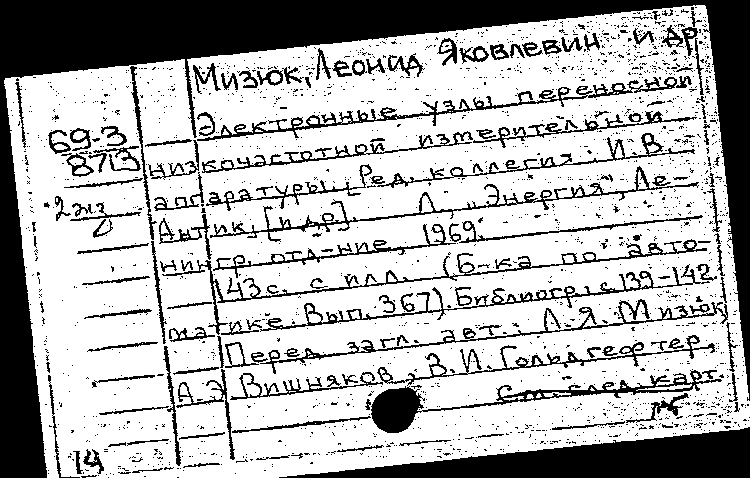 Мизюк, Леонид Яковлевич и др
69-3
8713
2 экз
Электронные узлы переносной
низкочастотной измерительной
аппаратуры. [Ред. коллегия: И.В.
Антик, [и др]. Л., „Энергия", Ле-
нингр. отд-ние, 1969.
143с. с илл. (Б-ка по авто-
матике. Вып. 367). Библиогр.: с. 139-142
Перед загл. авт.: Л.Я. Мизюк,
А.Э Вишняков, В.И. Гольдгефтер,
См. след. карт.
14